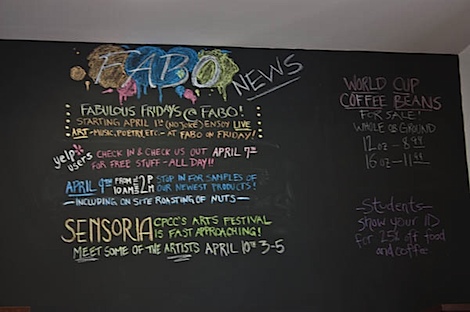 FABO NEWS
FABULOUS FRIDAYS @ FABO!
STARTING APRIL 1ST (NO JOKE) ENJOY LIVE
ART - MUSIC, POETRY, ETC. - AT FABO ON FRIDAY!
yelp users CHECK IN & CHECK US OUT APRIL 7TH
FOR FREE STUFF - ALL DAY!!
APRIL 9TH FROM 10AM 2PM STOP IN FOR SAMPLES OF
OUR NEWEST PRODUCTS!
- INCLUDING ON SITE ROASTING OF NUTS -
SENSORIA CPCC'S ARTS FESTIVAL
IS FAST APPROACHING!
MEET SOME OF THE ARTISTS APRIL 10TH 3-5
WORLD CUP
COFFEE BEANS
FOR SALE!
WHOLE OR GROUND
12 OZ - 8
16 OZ - 11
Students -
Show your ID
for 25% off food
and coffee